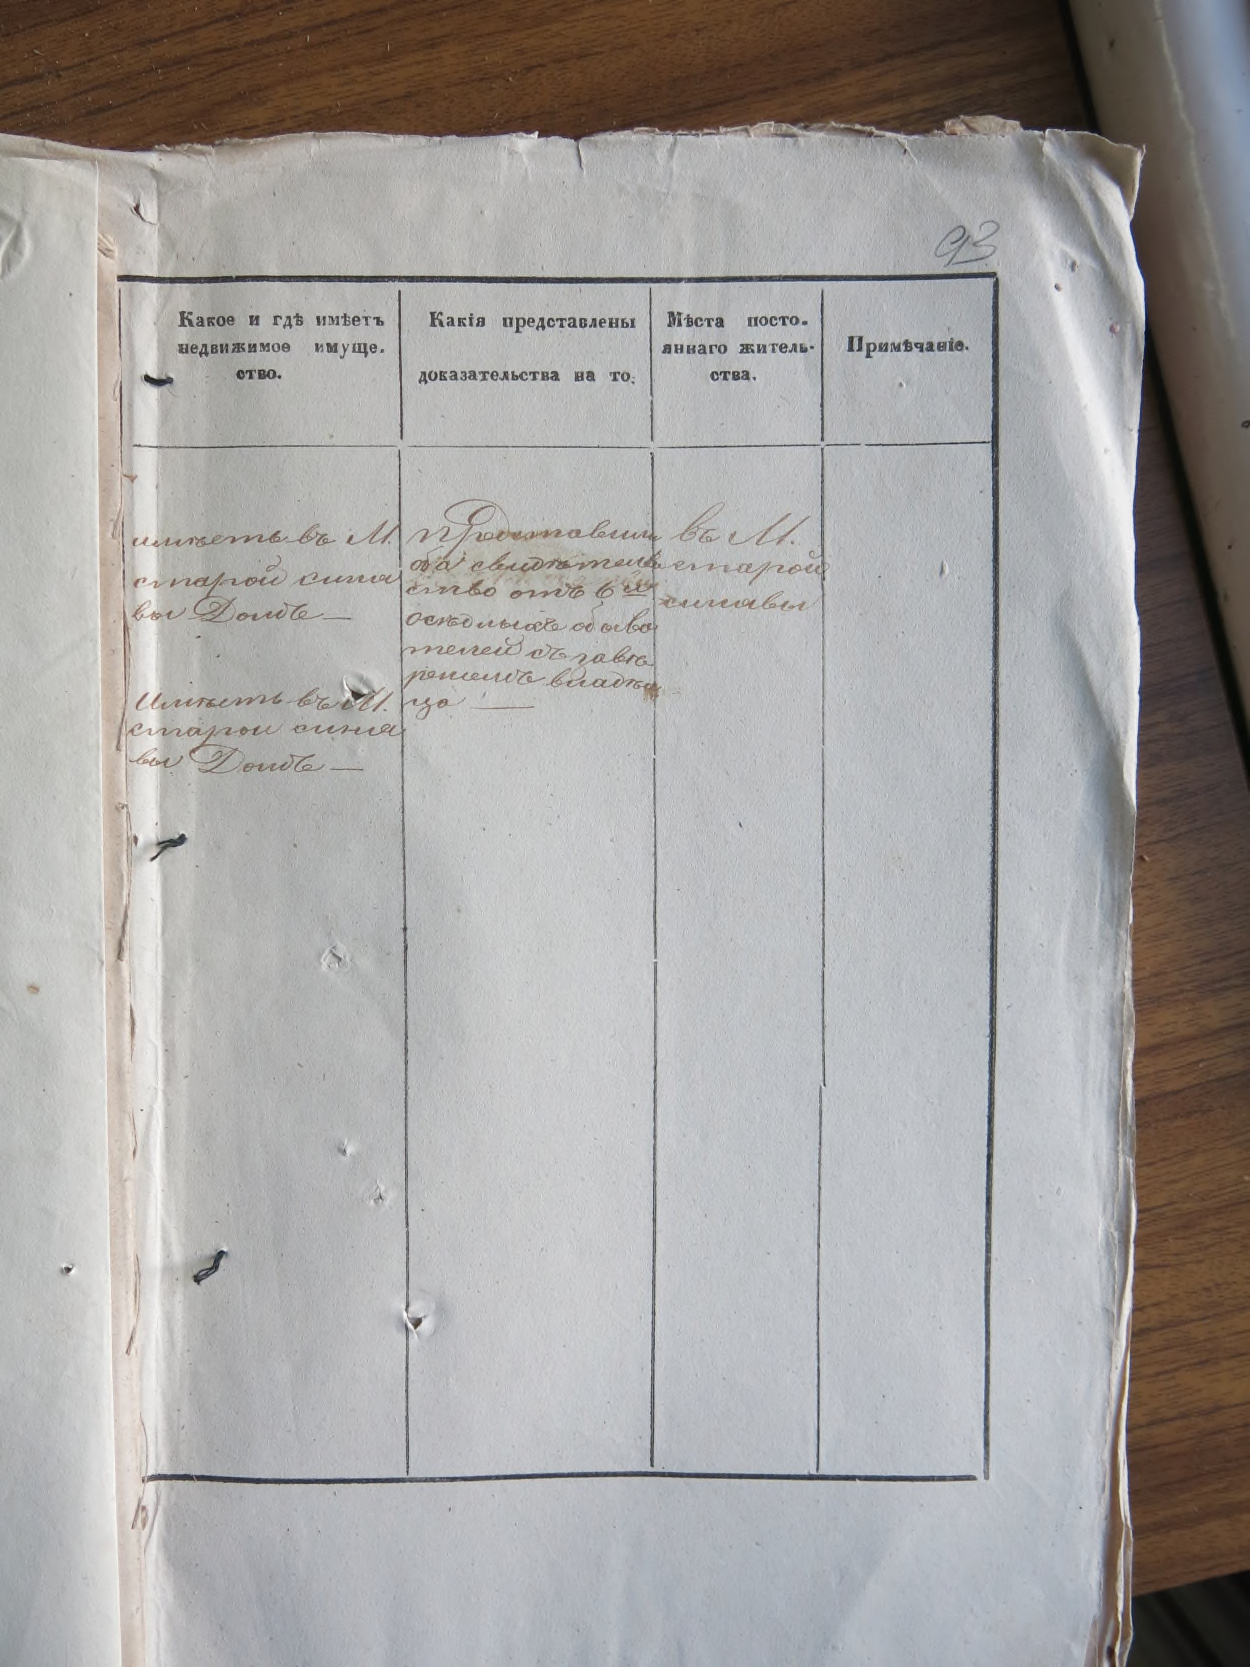 93
Какое и гдѣ имѣетъ
недвижимое имуще-
ство.
Какія представлены
доказательства на то.
Мѣста посто-
яннаго житель-
ства.
Примѣчаніе.
имѣетъ въ М.
старой синя
вы Домъ —
Имѣетъ въ М.
старой синя
вы Домъ —
Представили
оба свидѣтель
ство отъ 6и
осѣдлыхъ обыва
телей съ завѣ
реніемъ владѣль
ца —
въ М.
старой
синявы